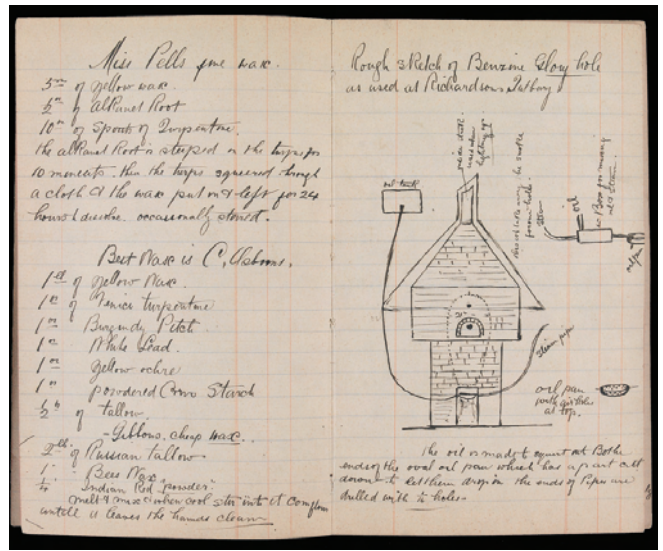 Miss Pells fine wax.
5 oz of yellow wax.
½ oz of alkanet Root
10 oz of Spirits of Turpentine.
the alkanet Root is steeped in the turps for
10 moments. then the turps squeezed through
a cloth & the wax put on & left for 24
hours to dissolve. occasionally stirred.
Best Wax is C. Osborns.
1 of Yellow Wax.
1 oz of Venice turpentine
1 oz Burgundy Pitch
1 oz White Lead.
1 oz yellow ochre
1 oz powdered Corn Starch
½ of tallow.
Gibbons. cheap wax.
2 lb. of Russian tallow.
1 Bees Wax
¼ Indian Red powder.
melt & mix & when cool stir into it
untill it leaves the hands clean
Rough sketch of Benzine Glory hole
as used at Richardsons Tutbury
used when
lighting up
oil tank
steam
oil
Box for mixing
oil & steam
oil pan
steam pipe
oil pan
with air holes
at top.
the oil is made to squirt out Both
ends of the oval oil pan which has a part cut
down to let them drop in the ends of Pipes are
drilled with holes.